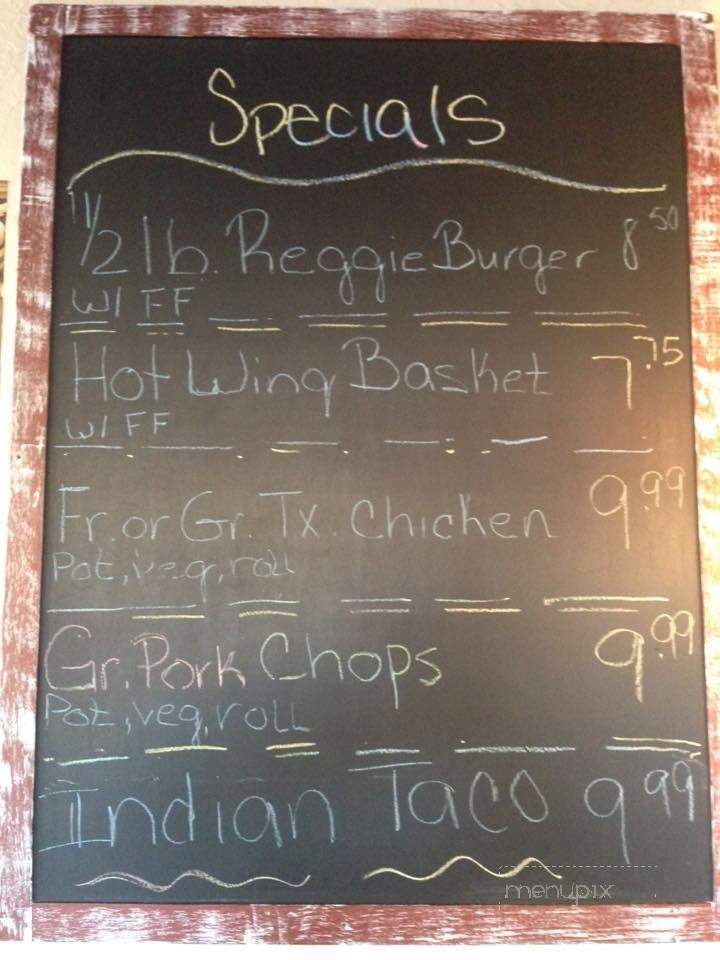 Specials
1/2 lb. Reggie Burger 8.50
W/ FF
Hot Wing Basket 7.75
W/ FF
Fr. or Gr. Tx. Chicken 9.99
Pot, veg, roll
Gr. Pork Chops 9.99
Pot, veg, roll
Indian Taco 9.99
menupix